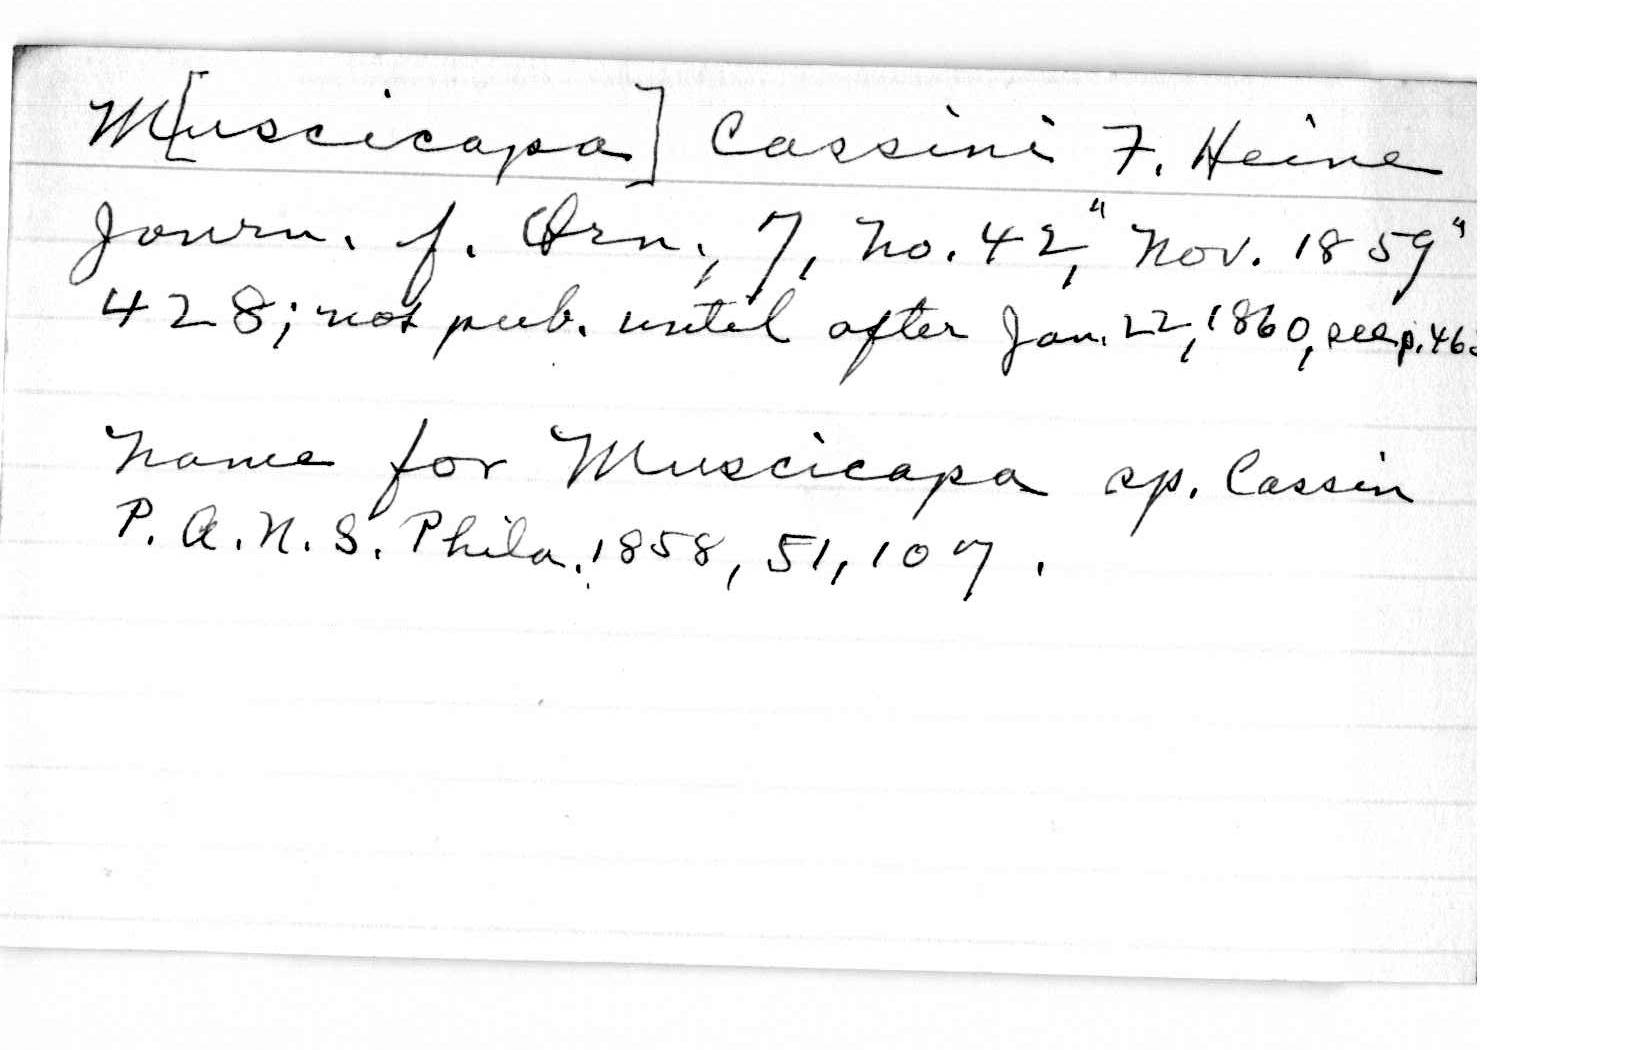 M[uscicapa] Cassini F. Heine
Journ. f. Orn., 7, No. 42, "Nov. 1859"
428; not pub. until after Jan. 22, 1860, see p.
Name for Muscicapa sp. Cassin
P. A. N. S. Phila. 1858, 51, 107.